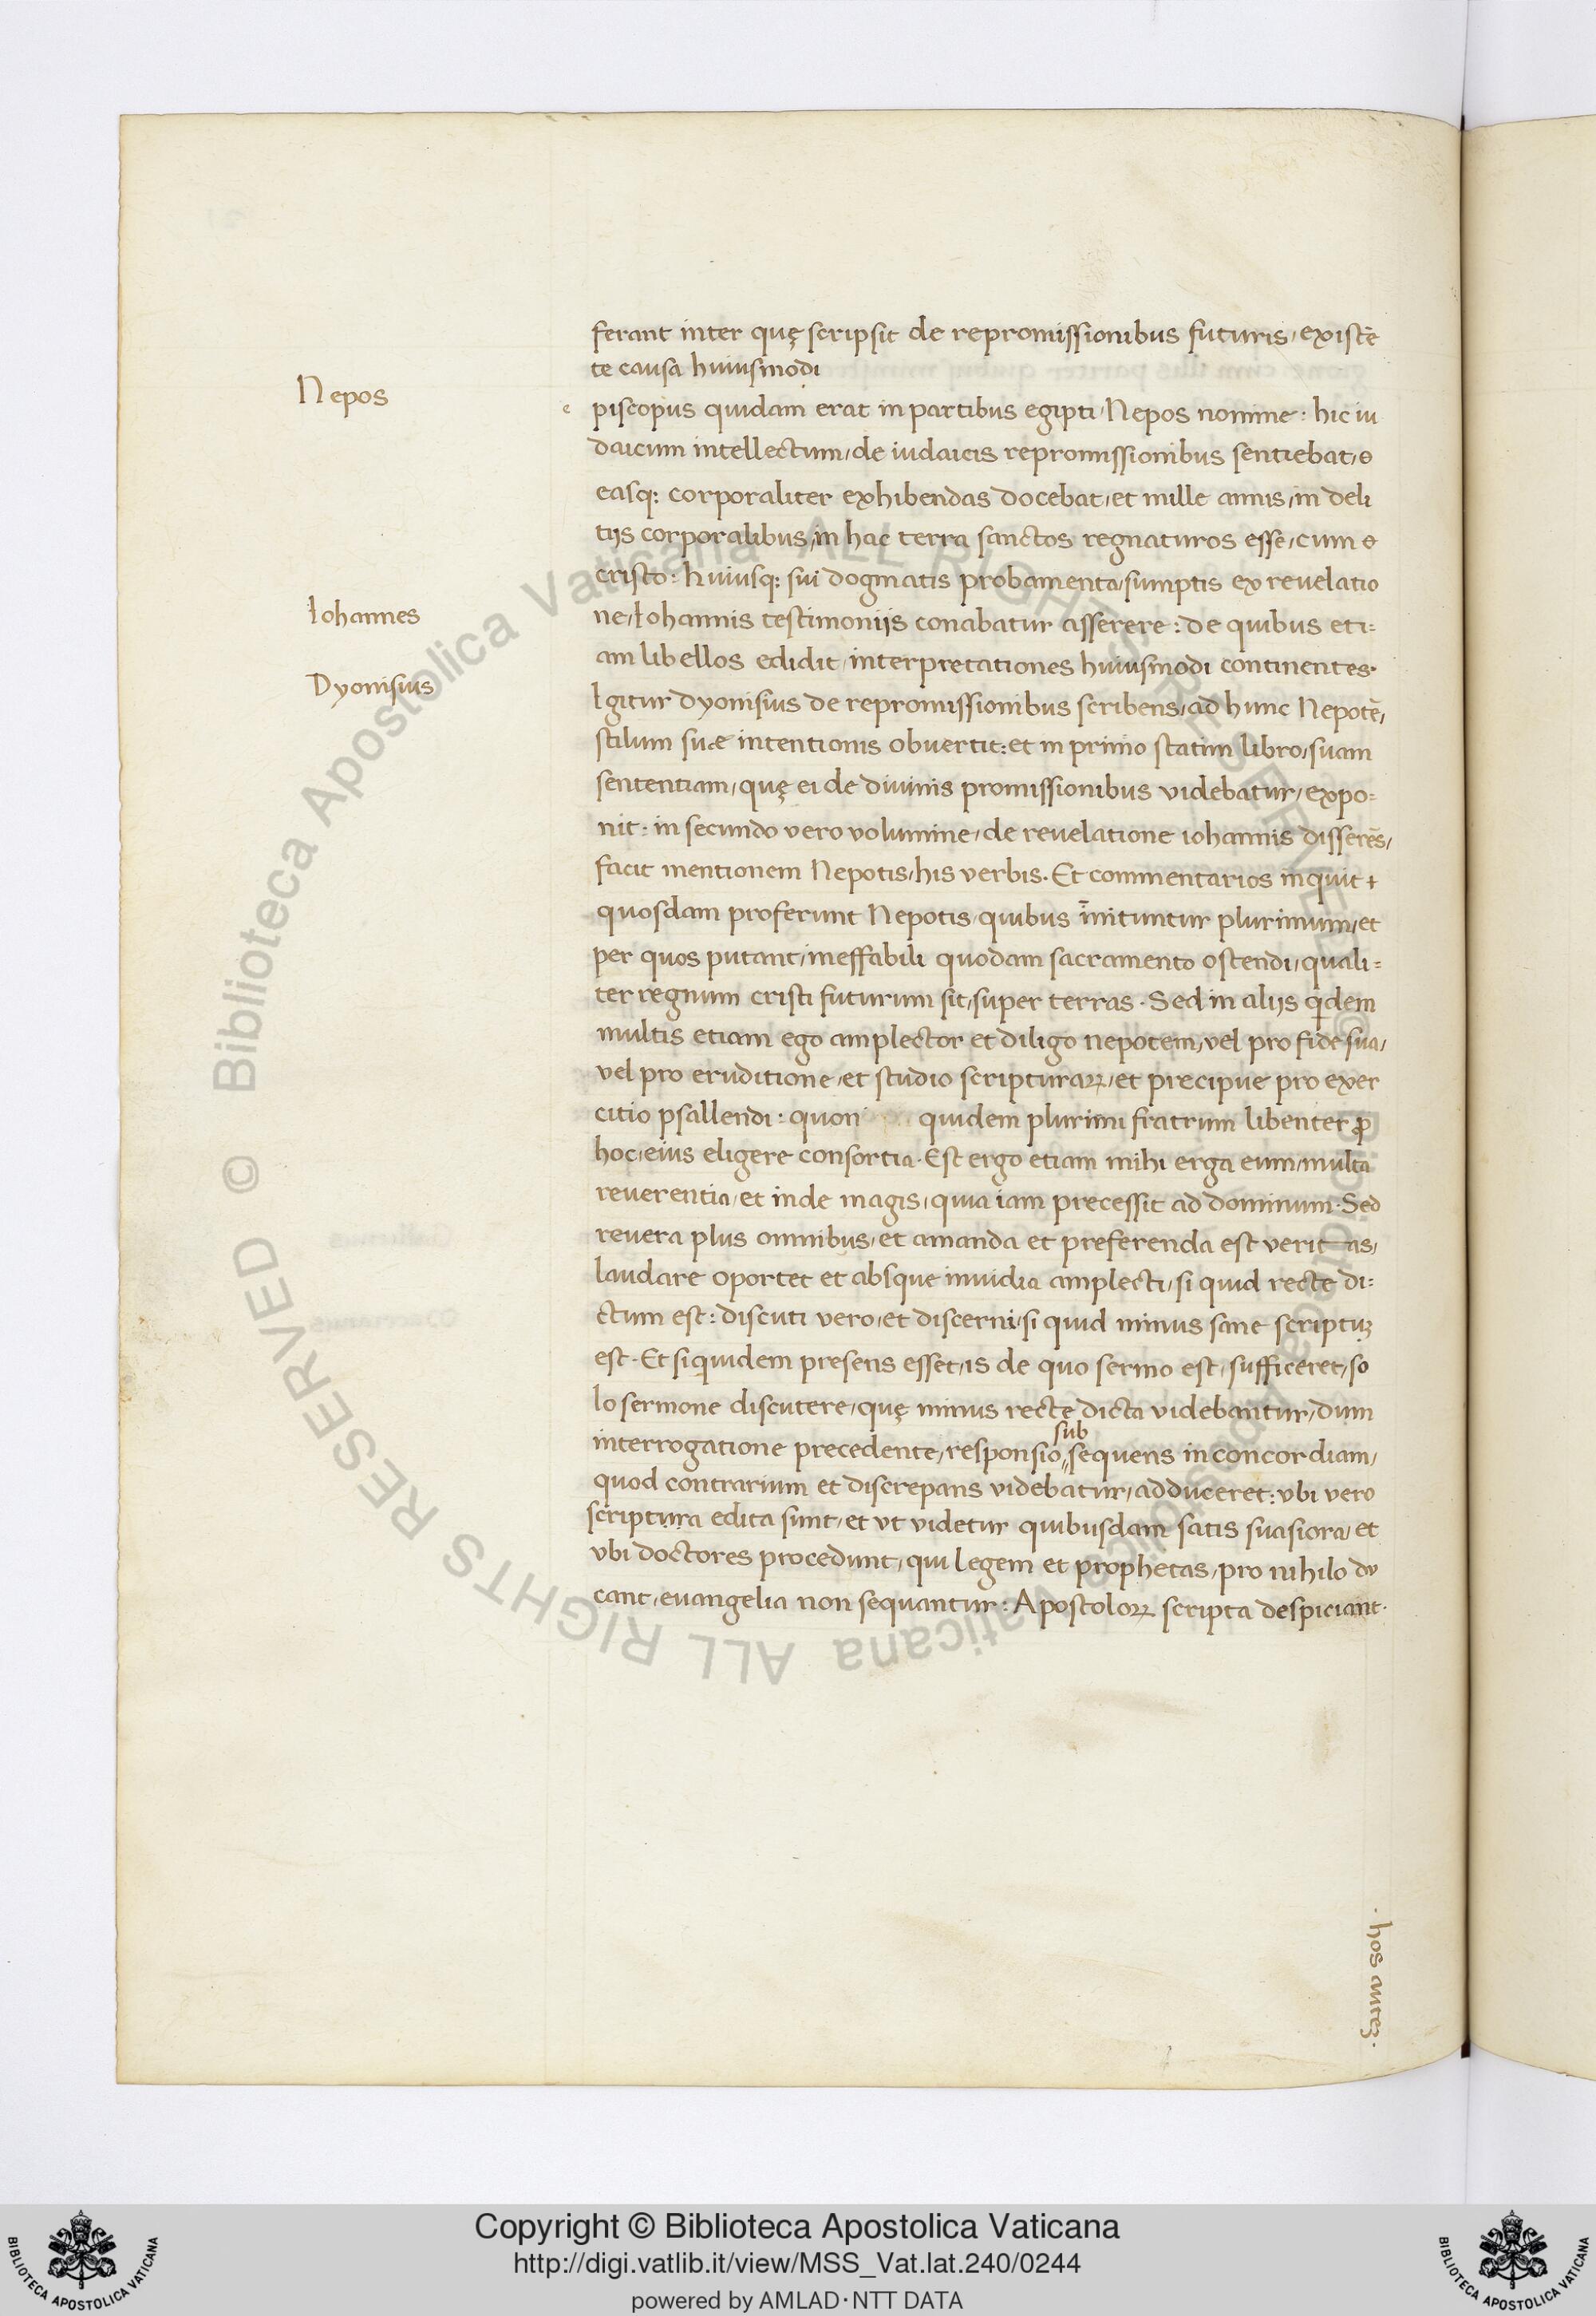 ferant inter quę scripsit de repromissionibus futuris, existē
te causa huiusmodi
Nepos
e piscopus quidam erat in partibus egipti, Nepos nomine: hic iu
daicum intellectum, de iudaicis repromissionibus sentiebat,
easq: corporaliter exhibendas docebat, et mille annis, in deli
tijs corporalibus, in hac terra sanctos regnaturos esse, cum
cristo: huiusq: sui dogmatis probamenta, sumptis ex reuelatio
Iohannes
ne, Iohannis testimonijs conabatur asserere: de quibus eti=
am libellos edidit, interpretationes huiusmodi continentes.
Dyonisius
Igitur dyonisius de repromissionibus scribens, ad hunc Nepotē,
stilum suæ intentionis obuertit: et in primo statim libro, suam
sententiam, quę ei de diuinis promissionibus videbatur, expo=
nit: in secundo vero volumine, de reuelatione iohannis disserēs,
facit mentionem Nepotis, his verbis. Et commentarios inquit +
quosdam proferunt Nepotis, quibus īnituntur plurimum, et
per quos putant, ineffabili quodam sacramento ostendi, quali=
ter regnum cristi futurum sit, super terras. Sed in alijs qdem
multis etiam ego amplector et diligo nepotem, vel pro fide sua,
vel pro eruditione, et studio scripturaꝝ, et precipue pro exer
citio psallendi: quon quidem plurimi fratrum libenter ꝓ
hoc, eius eligere consortia. Est ergo etiam mihi erga eum, multa
reuerentia, et inde magis, quia iam precessit ad dominum. Sed
reuera plus omnibus, et amanda et preferenda est veritas,
laudare oportet et absque inuidia amplecti, si quid recte di=
ctum est: discuti vero, et discerni, si quid minus sane scriptuꝫ
est. Et siquidem presens esset, is de quo sermo est, sufficeret, so
lo sermone discutere, quę minus recte dicta videbantur, dum
interrogatione precedente, responsio, sub sequens in concordiam,
quod contrarium et discrepans videbatur, adduceret: vbi vero
scriptura edita sunt, et vt videtur quibusdam satis suasiora, et
vbi doctores procedunt, qui legem et prophetas, pro nihilo du
cant, euangelia non sequantur: Apostoloꝝ scripta despiciant.
. hos auteꝫ .
© Biblioteca Apostolica Vaticana ALL RIGHTS RESERVED © Biblioteca Apostolica Vaticana ALL RIGHTS RESERVED
Copyright © Biblioteca Apostolica Vaticana
http://digi.vatlib.it/view/MSS_Vat.lat.240/0244
powered by AMLAD·NTT DATA
BIBLIOTECA APOSTOLICA VATICANA
BIBLIOTECA APOSTOLICA VATICANA